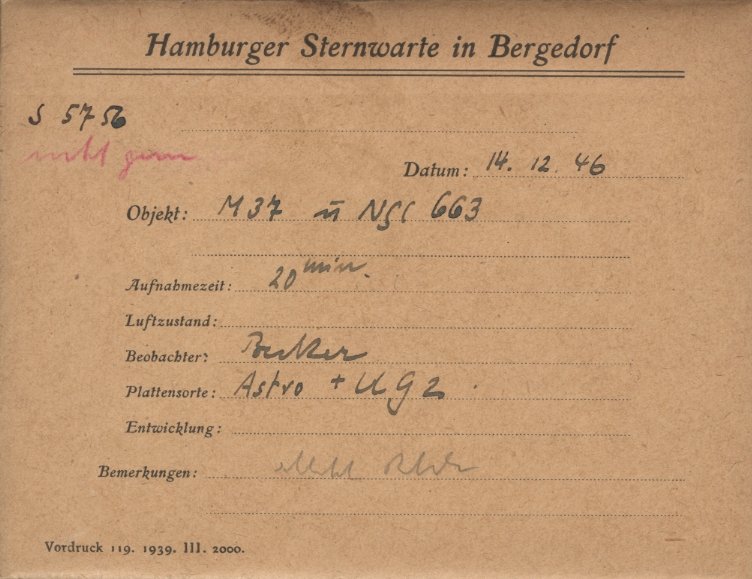 Hamburger Sternwarte in Bergedorf
S 5756
nicht
Datum: 14. 12. 46
Objekt: M 37 ū NGC 663
Aufnahmezeit: 20 min.
Luftzustand:
Beobachter: Becker
Plattensorte: Astro + UG2
Entwicklung:
Bemerkungen:
Vordruck 119. 1939. III. 2000.